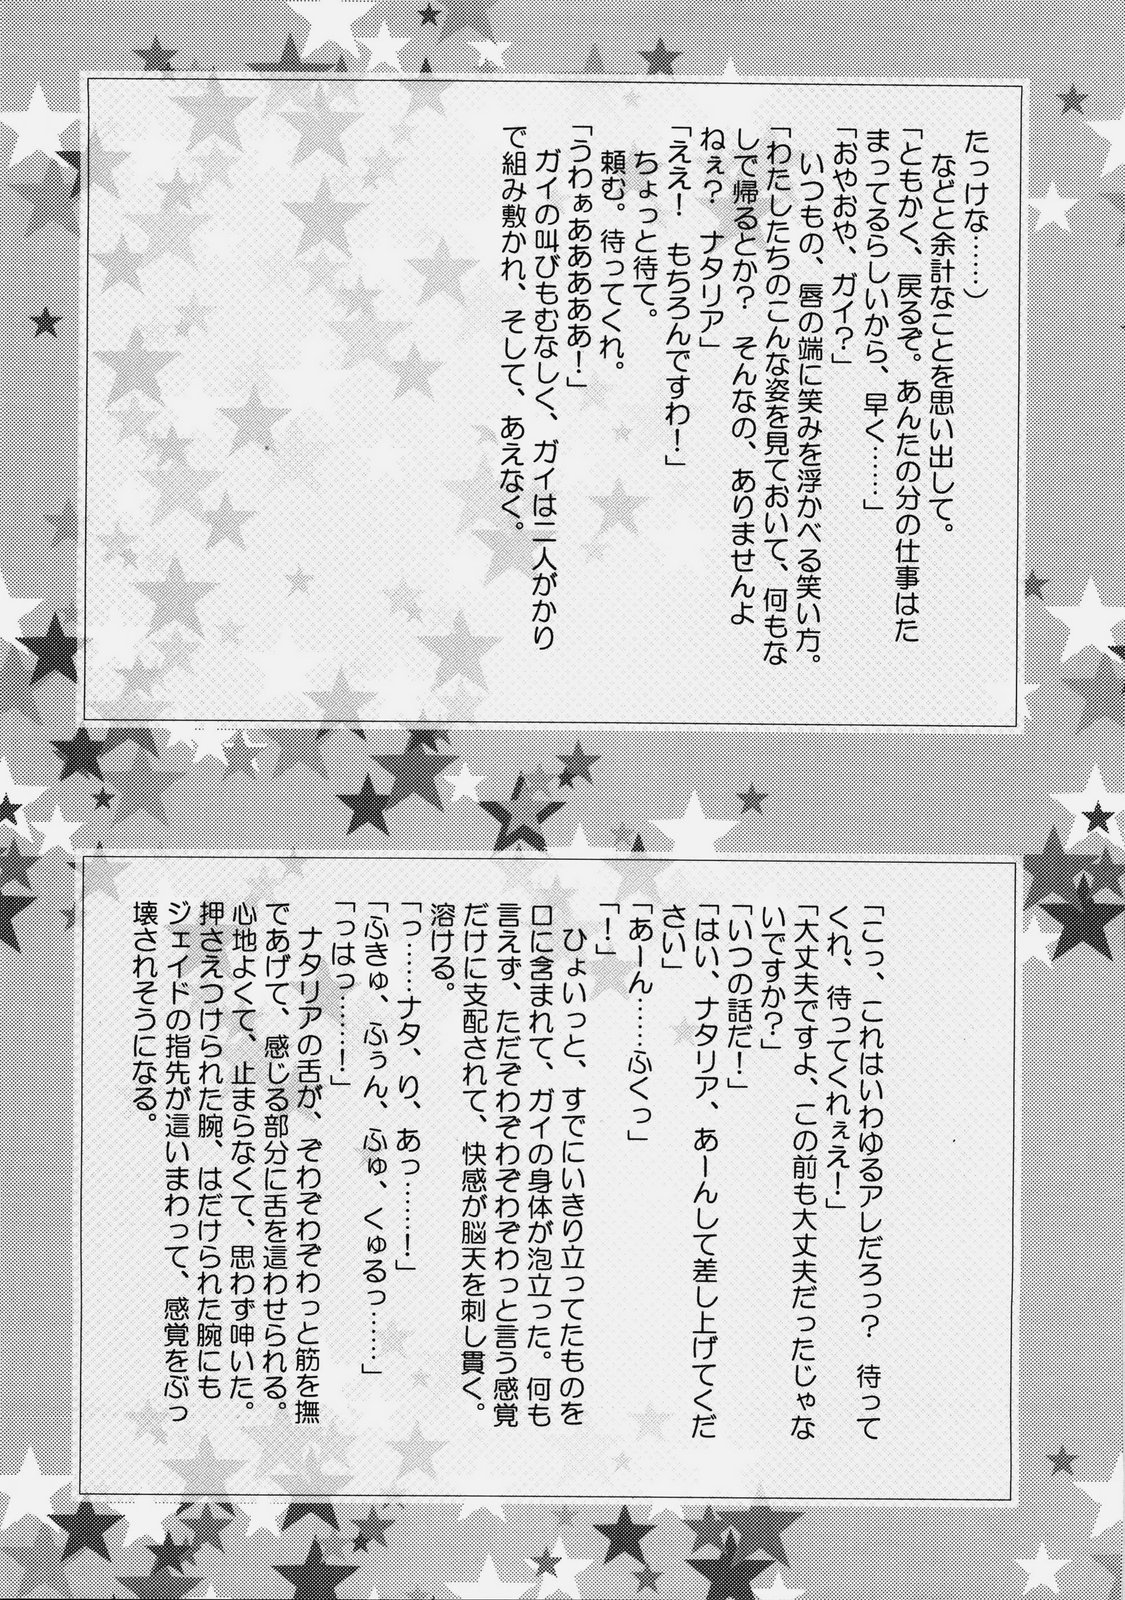 たっけな……）
などと余計なことを思い出して。
「ともかく、戻るぞ。あんたの分の仕事はた
まってるらしいから、早く……」
「おやおや、ガイ？」
いつもの、唇の端に笑みを浮かべる笑い方。
「わたしたちのこんな姿を見ておいて、何もな
しで帰るとか？　そんなの、ありませんよ
ねぇ？　ナタリア」
「ええ！　もちろんですわ！」
ちょっと待て。
頼む。待ってくれ。
「うわぁあああああ！」
ガイの叫びもむなしく、ガイは二人がかり
で組み敷かれ、そして、あえなく。
「こっ、これはいわゆるアレだろっ？　待って
くれ、待ってくれぇえ！」
「大丈夫ですよ、この前も大丈夫だったじゃな
いですか？」
「いつの話だ！」
「はい、ナタリア、あーんして差し上げてくだ
さい」
「あーん……ふくっ」
「！」
ひょいっと、すでにいきり立ってたものを
口に含まれて、ガイの身体が泡立った。何も
言えず、ただぞわぞわぞわぞわっと言う感覚
だけに支配されて、快感が脳天を刺し貫く。
溶ける。
「っ……ナタ、り、あっ……！」
「ふきゅ、ふぅん、ふゅ、くゅるっ……」
「っはっ……！」
ナタリアの舌が、ぞわぞわぞわっと筋を撫
であげて、感じる部分に舌を這わせられる。
心地よくて、止まらなくて、思わず呻いた。
押さえつけられた腕、はだけられた腕にも
ジェイドの指先が這いまわって、感覚をぶっ
壊されそうになる。